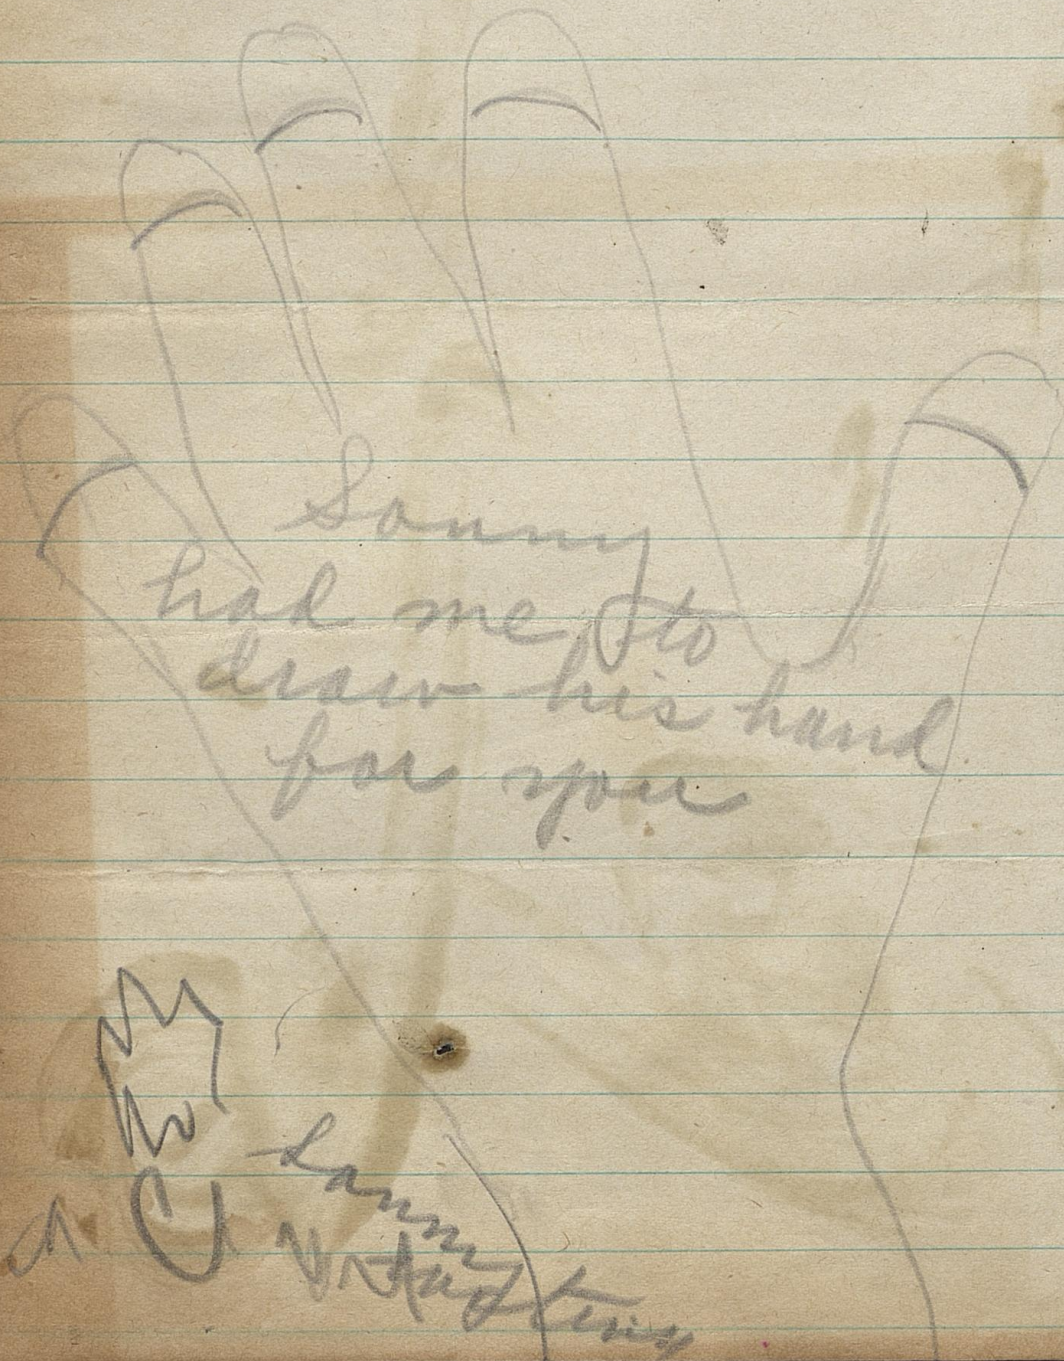 Sonny
had me to
draw his hand
for you
Sonny